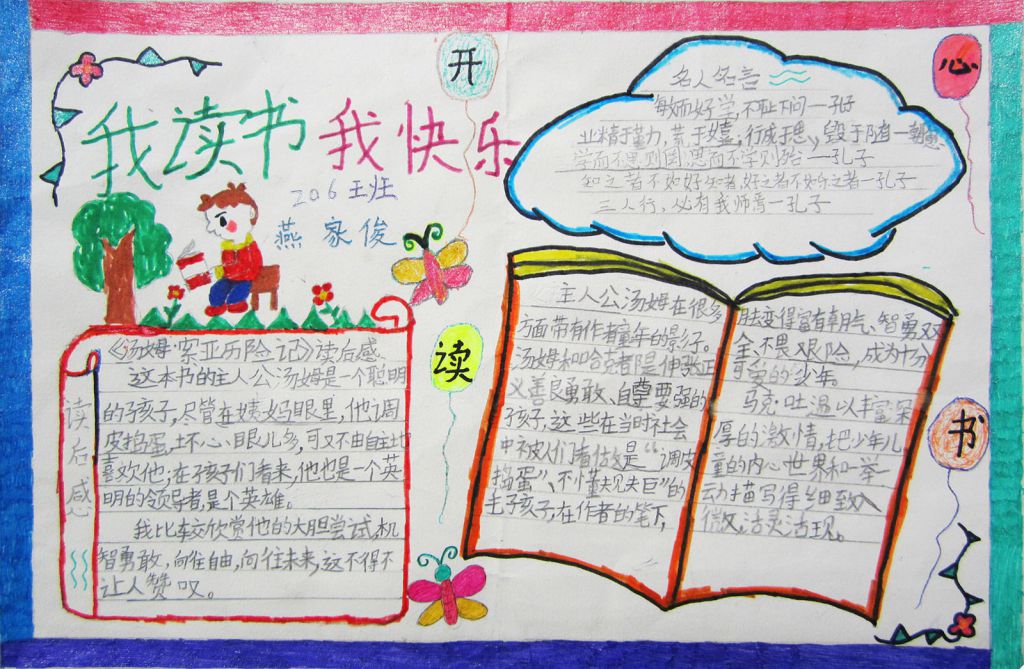 开
心
读
书
我读书 我快乐
206王班
燕家俊
名人名言
敏而好学,不耻下问一孔子
业精于勤力,荒于嬉;行成于思,毁于随者一韩愈
学而不思则罔,思而不学则殆一孔子
知之者不如好知者,好之者不如乐之者一孔子
三人行,必有我师焉一孔子
读后感
《汤姆·索亚历险记》读后感
这本书的主人公汤姆是一个聪明
的孩子,尽管在姨妈眼里,他调
皮捣蛋,坏心眼儿多,可又不由自主地
喜欢他,在孩子们看来,他也是一个英
明的领导者,是个英雄。
我比较欣赏他的大胆尝试,机
智勇敢,向往自由,向往未来,这不得不
让人赞叹。
主人公汤姆在很多
方面带有作者童年的影子。
汤姆和哈克者是伸张正
义善良勇敢、自尊要强的
孩子,这些在当时社会
中被人们看作是“调皮
捣蛋”、不懂规矩”的
毛孩子,在作者的笔下,
变得富有朝气、智勇双
全、不畏艰险,成为十分
可爱的少年。
马克·吐温以丰富深
厚的激情,把少年儿
童的内心世界和一举一
动描写得细致入
微,活灵活现。